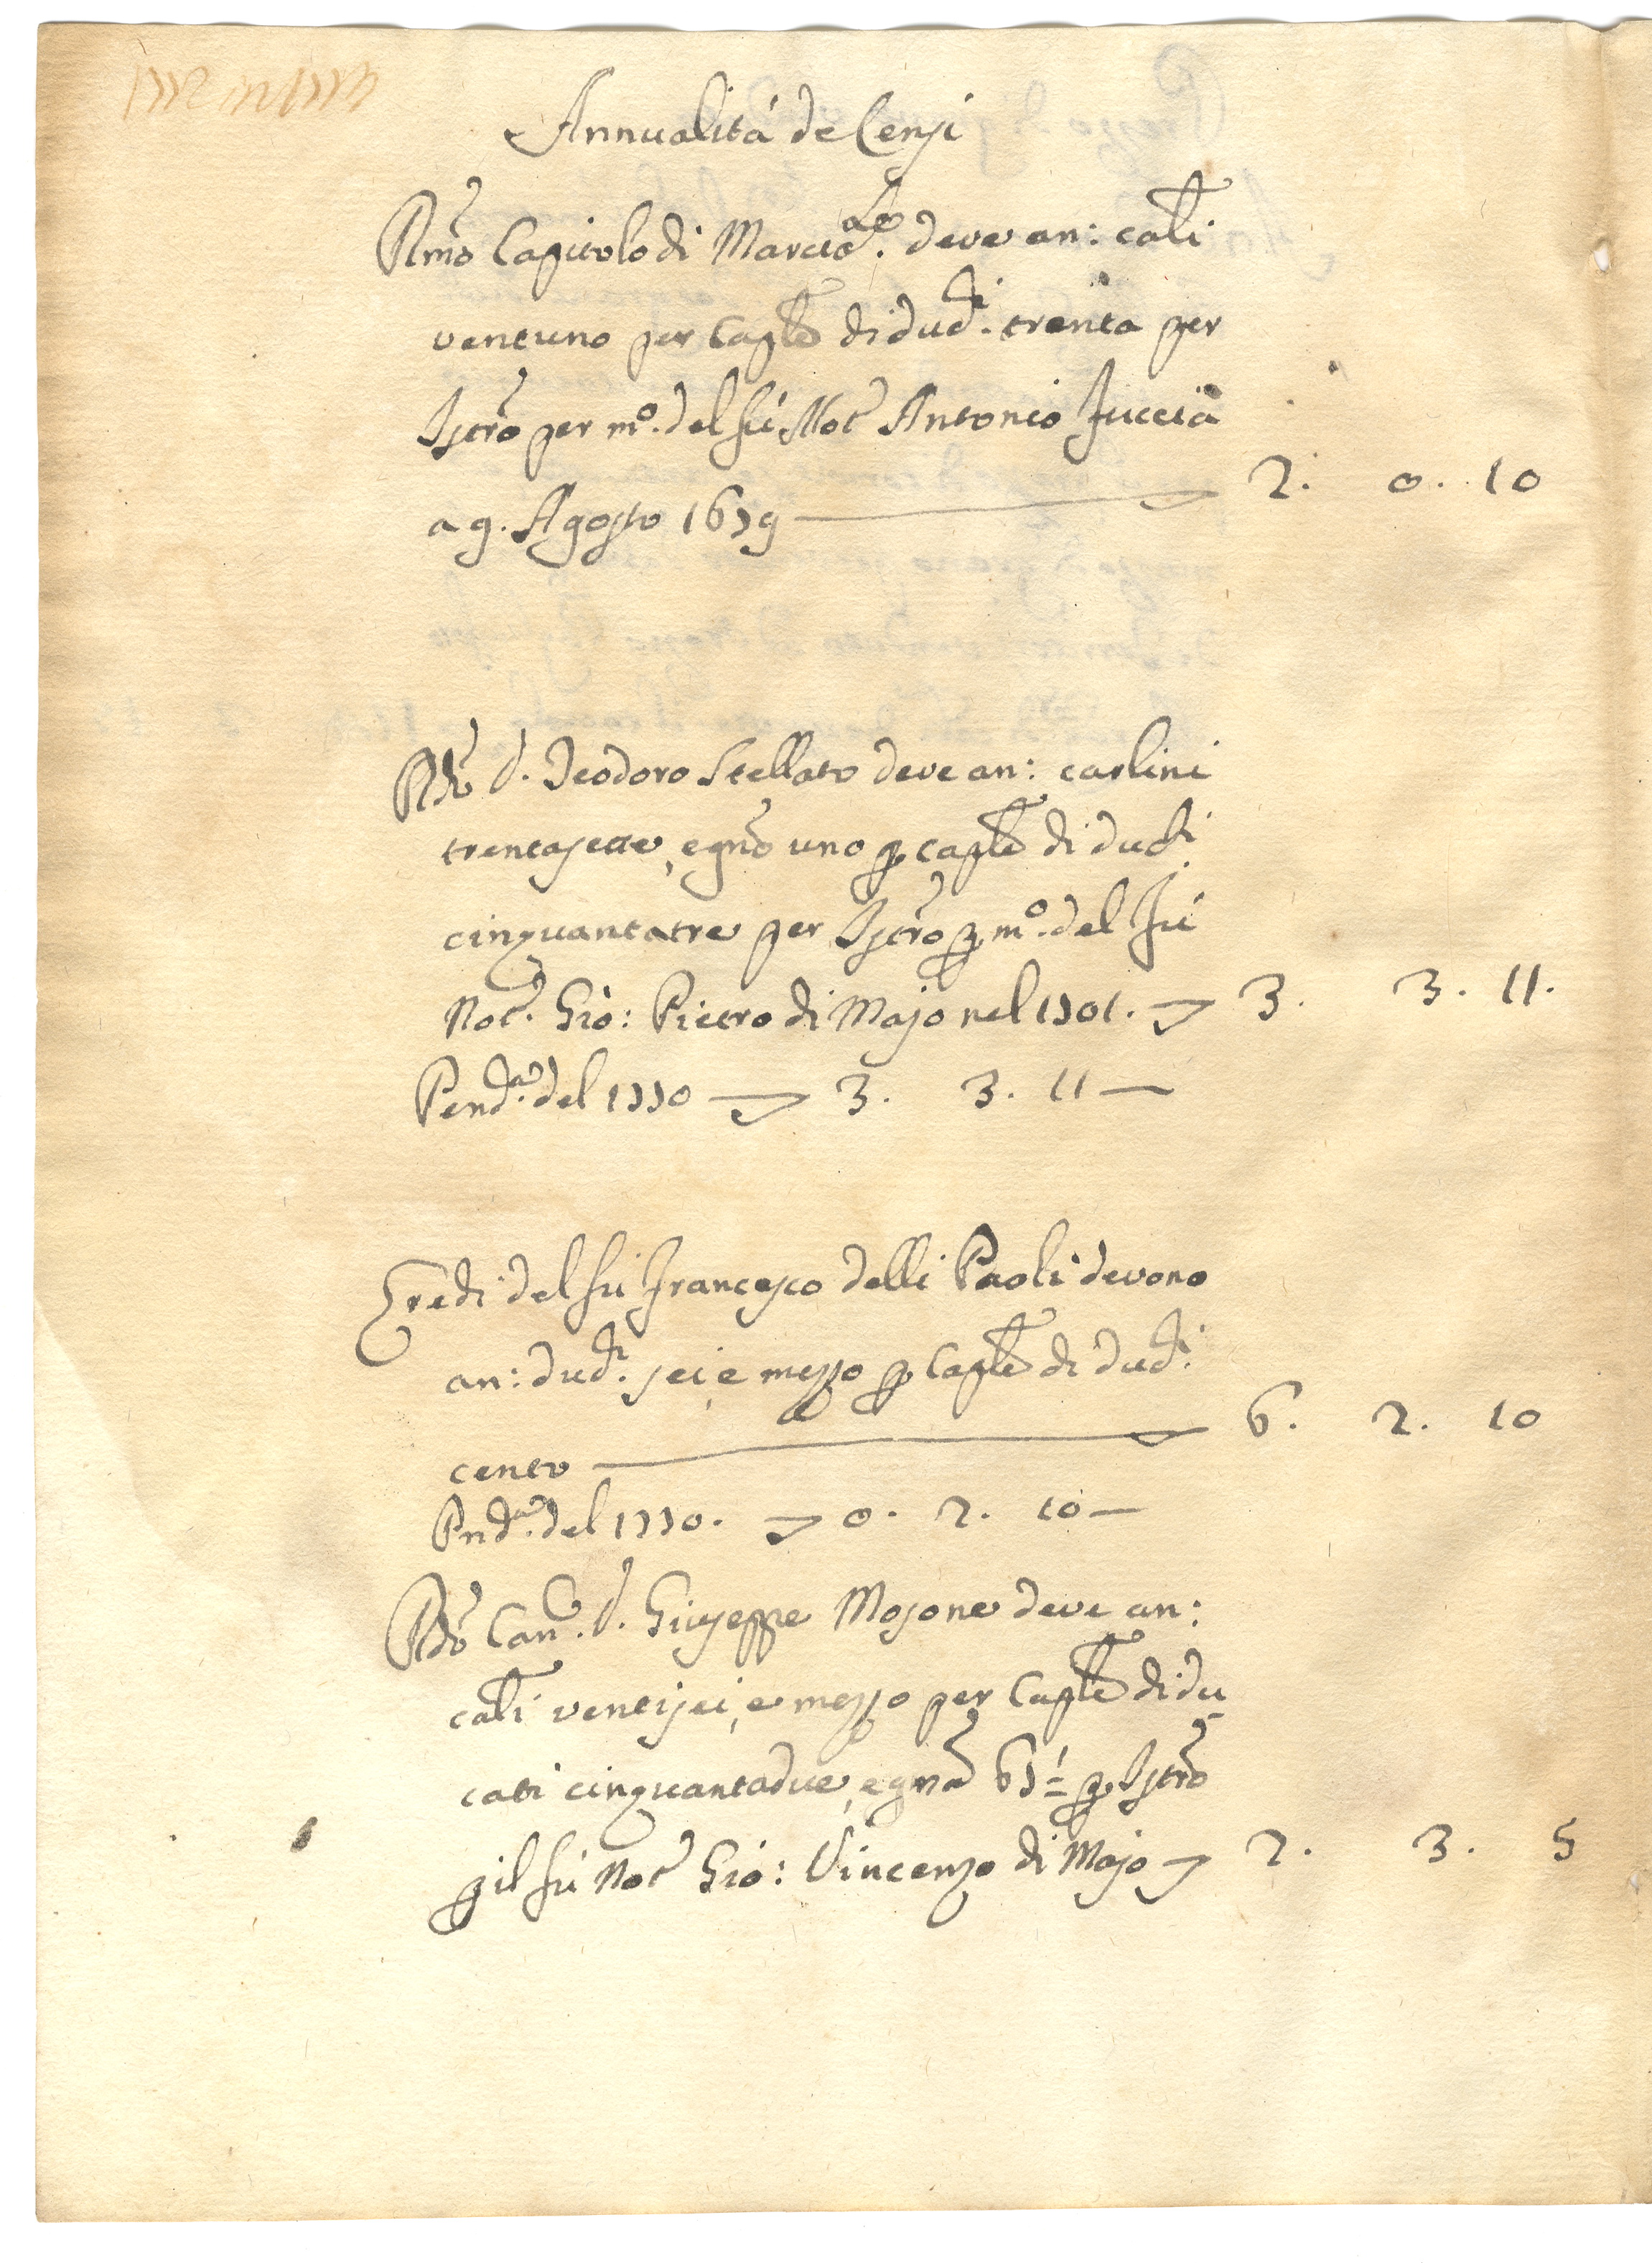 Annualitá de Censi
Rmõ Capitolo di Marcia.le deve an: carli
ventuno per Caple di duc.ti trenta per
Istro per m.o del fú Not.r Antonio Iuccia
a 9. Agosto 1679 2. 0. 10
Rdo d. Teodoro Stellato deve an: carlini
trentasette, e gno uno p caple di ducti
cinquantatre per Istro p m.o del fú
Not.r Gio: Pietro di Majo nel 1701. 3. 3. 11.
Pend.a del 1770 3. 3. 11
Eredi del fu Francesco delli Paoli devono
an: duc.ti sei, e mezzo p Caple di duc.ti
cento 6. 2. 10
Pnd.a del 1770. 0. 2. 10
Rdo Can.co d. Giuseppe Mosone deve an:
carli ventisei, e mezzo per Caple di du
cati cinquantadue, e gna 67 p Istro
p il fú Not.r Gio: Vincenzo di Majo 2. 3. 5